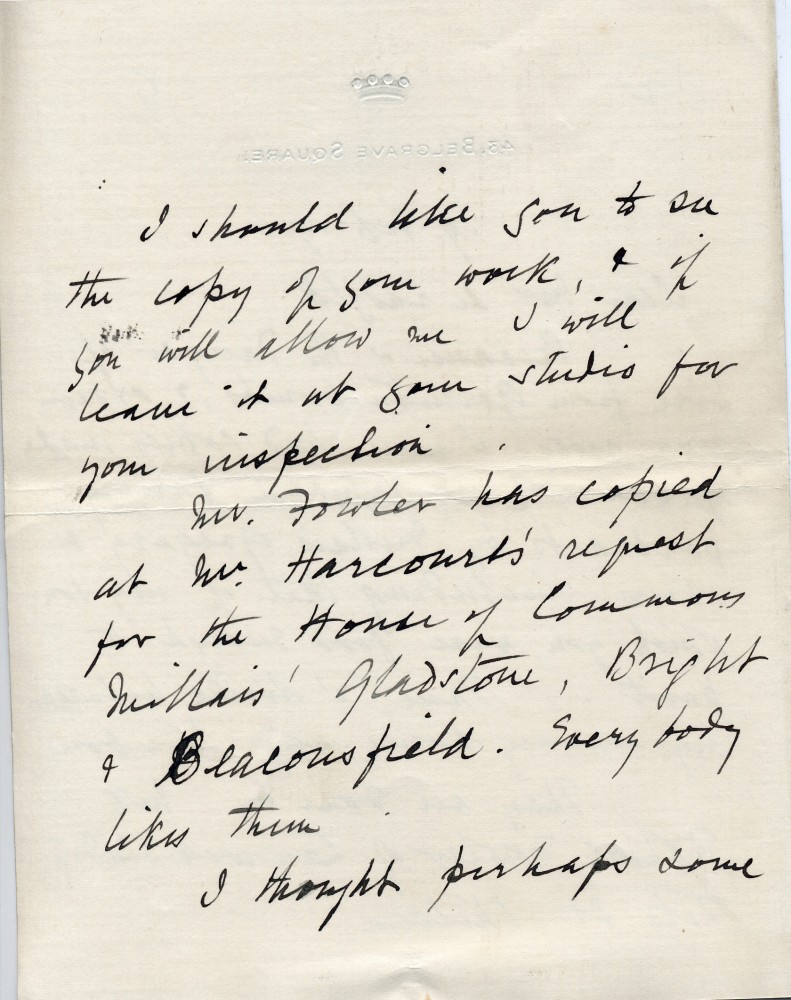 43, BELGRAVE SQUARE.
I should like you to see
the copy of your work, & if
you will allow me I will
leave it at your studio for
your inspection.
Mr. Fowler has copied
at Mr. Harcourt's request
for the House of Commons
Millais' Gladstone, Bright
& Beaconsfield. Every body
likes them.
I thought perhaps some